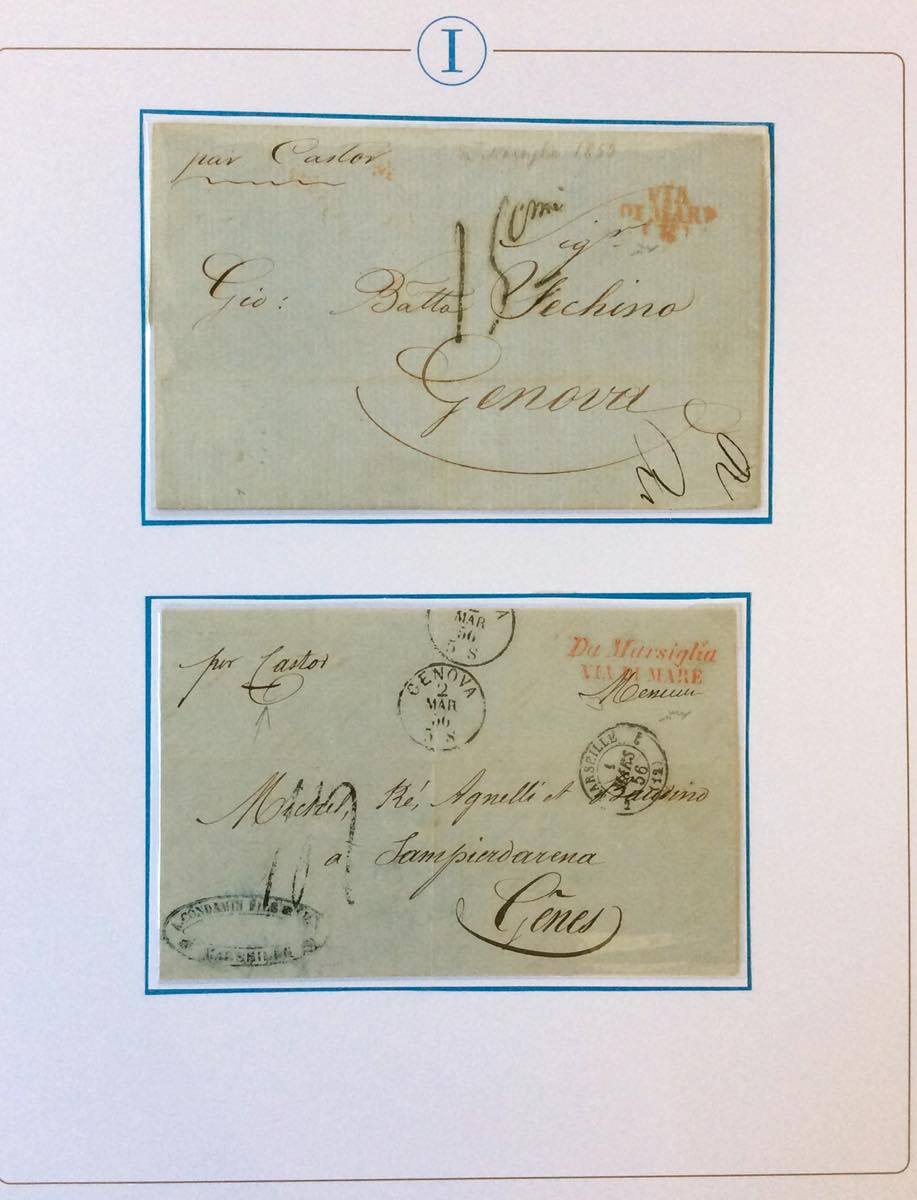 I
par Castor
Marsiglia 1853
VIA
DI MARE
15 Cmi
Sigr
Gio: Batta Fechino
Genova
MAR
56
5 S
per Castor
Da Marsiglia
VIA DI MARE
GENOVA
2
MAR
56
5 S
MARSEILLE
1
MARS
56
(12)
Ré, Agnelli et
a Sampierdarena
Gênes
A. CONDAMIN FILS
MARSEILLE